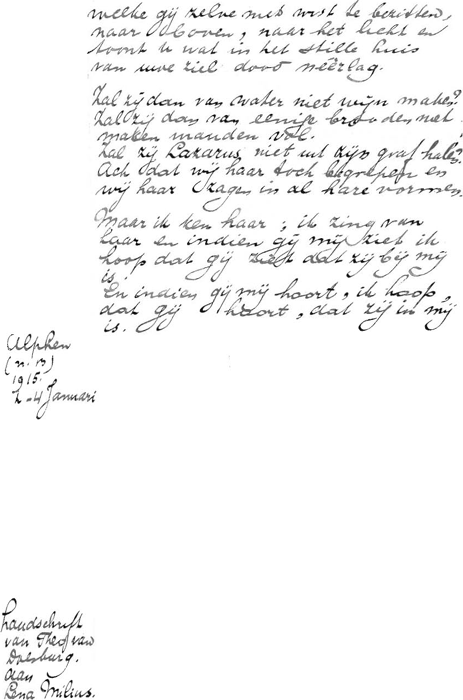 welke gij zelve niet wist te bezitten,
naar boven, naar het licht en
toont u wat in het stille huis
van uwe ziel dood neêrlag.
Zal zij dan van water niet wijn maken?
Zal zij dan van eenige brooden niet
maken manden vol.
Zal zij Lazarus niet uit zijn graf halen?
Ach dat wij haar toch begrepen en
wij haar zagen in al hare vormen.
Maar ik ken haar; ik zing van
haar en indien gij mij ziet ik
hoop dat gij ziet dat zij bij mij
is.
En indien gij mij hoort, ik hoop,
dat gij hoort, dat zij in mij
is.
Alphen
(n. B)
1915.
2-4 Januari
handschrift
van Theo van
Doesburg.
aan
Lena Milius.